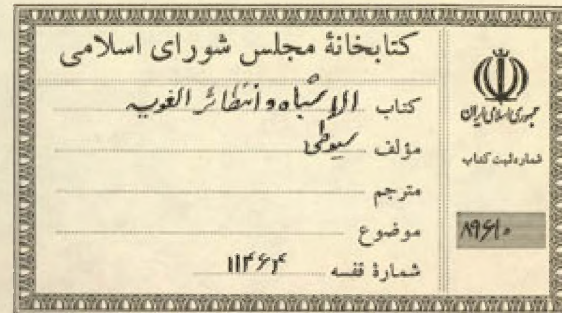 کتابخانهٔ مجلس شورای اسلامی
کتاب الاشباه و النظائر الغویه
مؤلف سیوطی
مترجم
موضوع
شمارهٔ قفسه ۱۱۴۶۴
جمهوری اسلامی ایران
شماره ثبت کتاب
۸۹۶۱۰